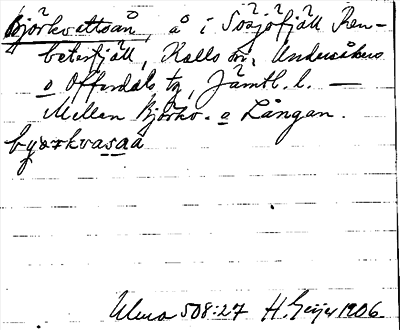 Björkvattsån, å i Sösjöfjäll Ren-
betesfjäll, Kalls sn, Undersåkers
o Offerdals tg, Jämtl. l. —
Mellan Björkv. o Långan.
byœrkvasaa
Ulma 508:27 H. Geijer 1906.